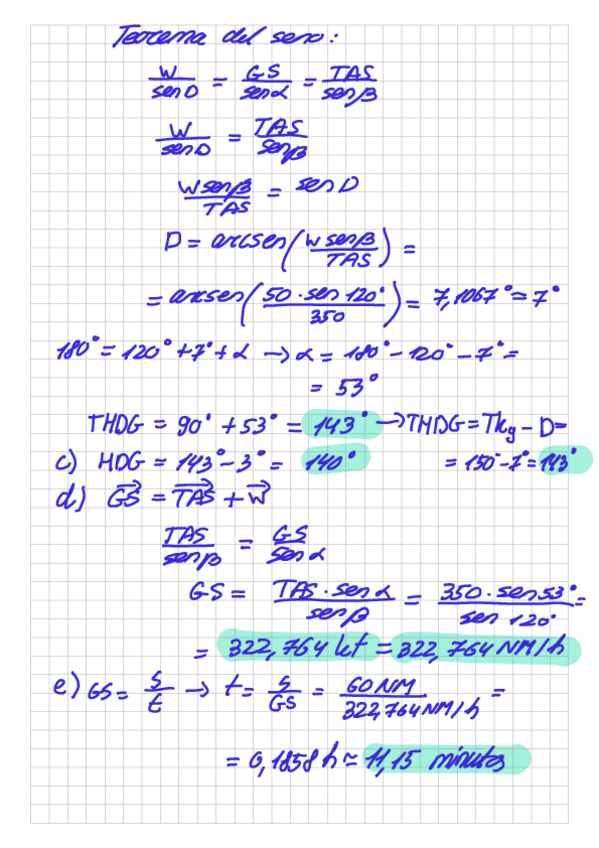 Teorema del seno:
W/sen D = GS/sen α = TAS/sen β
W/sen D = TAS/sen β
W sen β/TAS = sen D
D = arcsen(W sen β/TAS) =
= arcsen(50 · sen 120°/350) = 7,1067° ≈ 7°
180° = 120° + 7° + α → α = 180° - 120° - 7° =
= 53°
THDG = 90° + 53° = 143° → THDG = Tkg - D =
c) HDG = 143° - 3° = 140° = 150° - 7° = 143°
d) GS = TAS + W
TAS/sen β = GS/sen α
GS = TAS · sen α/sen β = 350 · sen 53°/sen 120° =
= 322,764 kt = 322,764 NM/h
e) GS = S/t → t = S/GS = 60 NM/322,764 NM/h =
= 0,1858 h ≈ 11,15 minutos